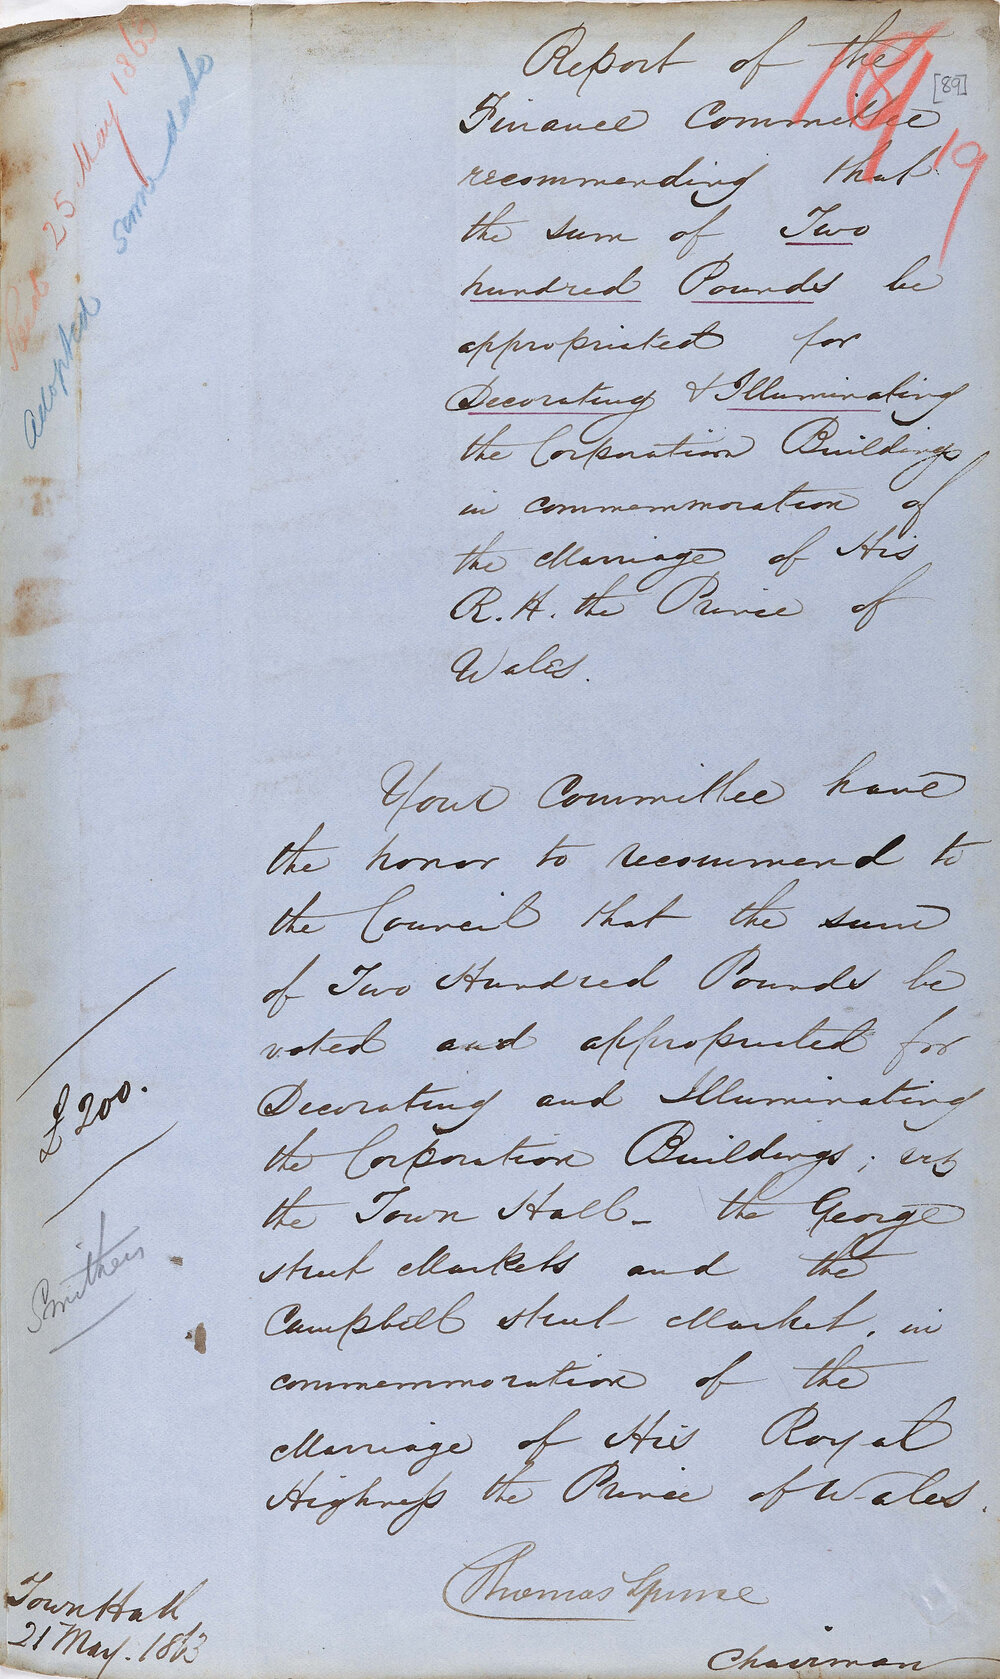 Recd 25 May 1863
Adopted same date
189
[89]
19
Report of the
Finance Committee
recommending that
the sum of Two
hundred Pounds be
appropriated for
Decorating & Illuminating
the Corporation Buildings
in commemmoration of
the Marriage of His
R.H. the Prince of
Wales.
Your Committee have
the honor to recommend to
the Council that the sum
of Two Hundred Pounds be
voted and appropriated for
Decorating and Illuminating
the Corporation Buildings; viz
the Town Hall - the George
street Markets and the
Campbell street Market, in
commemmoration of the
Marriage of His Royal
Highness the Prince of Wales.
£200.
Smithers
Thomas Spence
Chairman
Town Hall
21 May. 1863